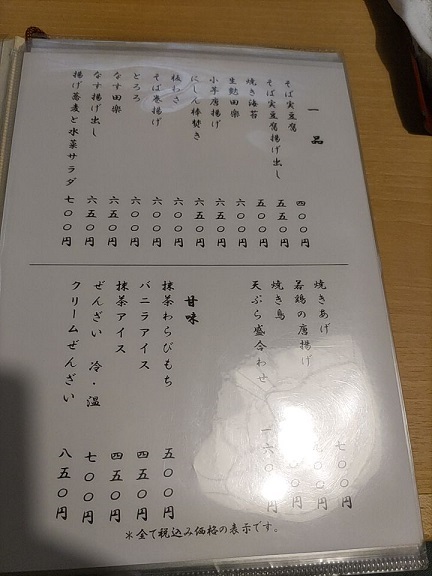 一品
そば実豆腐 四〇〇円
そば実豆腐揚げ出し 五五〇円
焼き海苔 五〇〇円
生麩田楽 六〇〇円
小芋唐揚げ 六五〇円
にしん棒焚き 六五〇円
板わさ 六〇〇円
そば巻揚げ 六〇〇円
とろろ 六〇〇円
なす田楽 六〇〇円
なす揚げ出し 六五〇円
揚げ蕎麦と水菜サラダ 七〇〇円
焼きあげ 七〇〇円
若鶏の唐揚げ 円
焼き鳥 円
天ぷら盛合わせ 円
甘味
抹茶わらびもち 五〇〇円
バニラアイス 四五〇円
抹茶アイス 四五〇円
ぜんざい 冷・温 七〇〇円
クリームぜんざい 八五〇円
＊全て税込み価格の表示です。